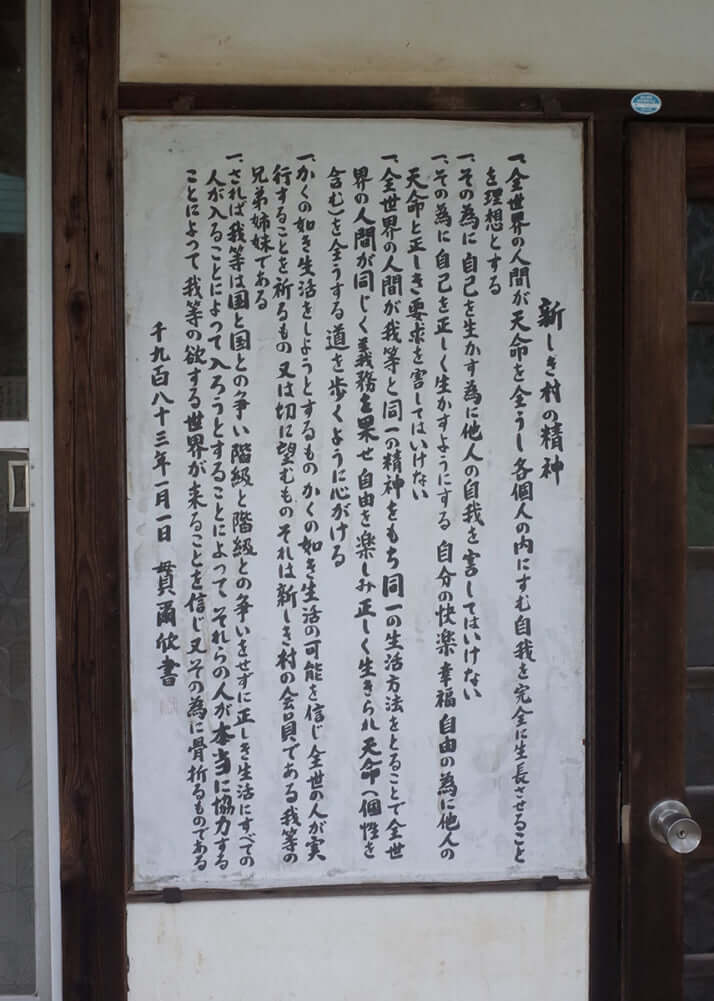 新しき村の精神
一、全世界の人間が天命を全うし各個人の内にすむ自我を完全に生長させること
を理想とする
一、その為に自己を生かす為に他人の自我を害してはいけない
一、その為に自己を正しく生かすようにする 自分の快楽 幸福 自由の為に他人の
天命と正しき要求を害してはいけない
一、全世界の人間が我等と同一の精神をもち同一の生活方法をとることで全世
界の人間が同じく義務を果せ自由を楽しみ正しく生きられ天命(個性を
含む)を全うする道を歩くように心がける
一、かくの如き生活をしようとするもの かくの如き生活の可能を信じ全世の人が実
行することを祈るもの 又は切に望むもの それは新しき村の会員である 我等の
兄弟姉妹である
一、されば我等は国と国との争い 階級と階級との争いをせずに正しき生活にすべての
人が入ることによって 入ろうとすることによって それらの人が本当に協力する
ことによって我等の欲する世界が来ることを信じ又その為に骨折るものである
千九百八十三年一月一日 貫爾欣書